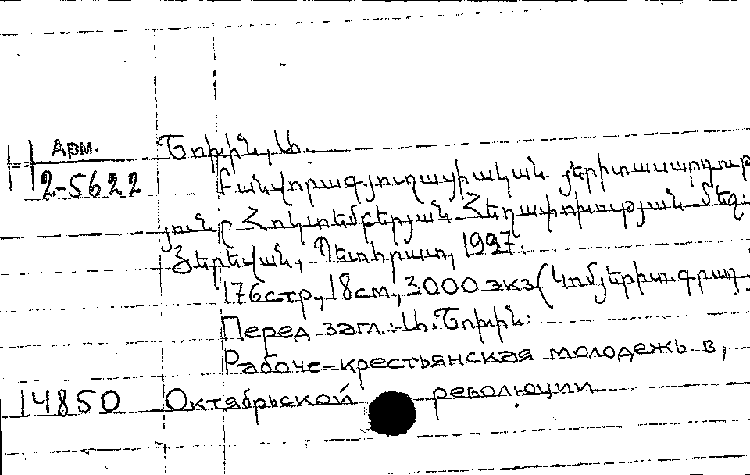 Арм.
2-5622
Շոխին, Ա.
Բանվորագյուղացիական յերիտասարդութ
յունը Հոկտեմբերյան Հեղափոխության մեջ.
Յերեվան, Պետհրատ, 1927.
176 стр., 18 см., 3000 экз. (Կոմյերիտ. գրադ.
Перед загл.: Ա. Շոխին:
Рабоче-крестьянская молодежь в,
14850 Октябрьской революции